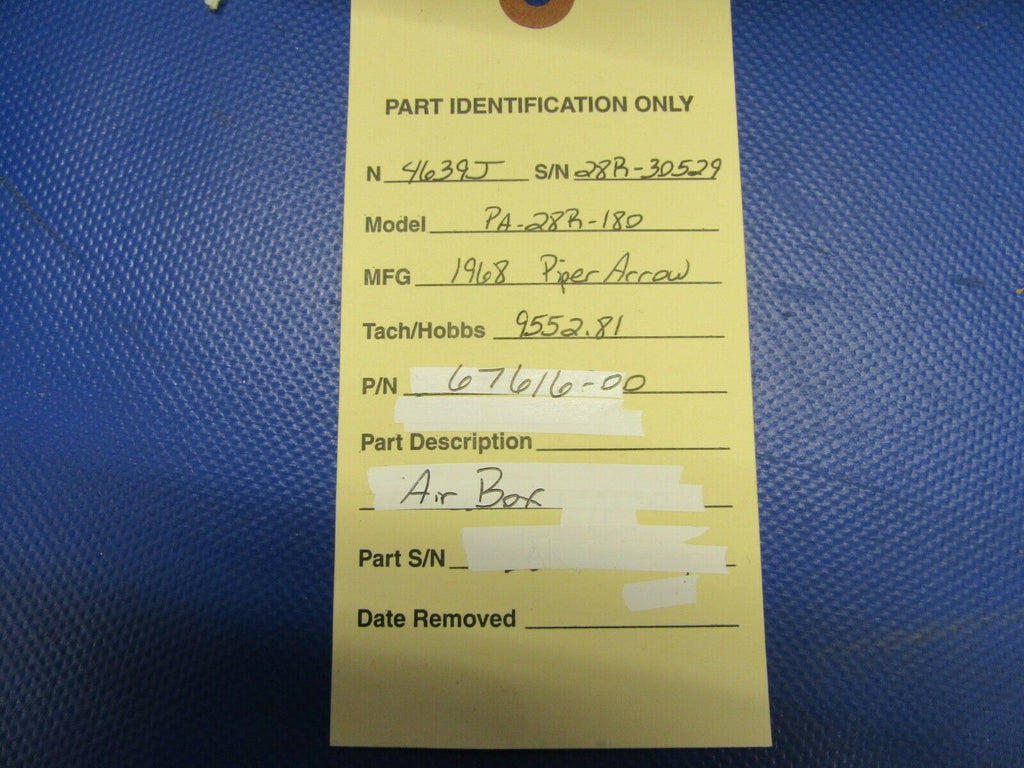 PART IDENTIFICATION ONLY
N 4639J S/N 28R-30529
Model PA-28R-180
MFG 1968 Piper Arrow
Tach/Hobbs 9552.81
P/N 67616-00
Part Description
Air Box
Part S/N
Date Removed